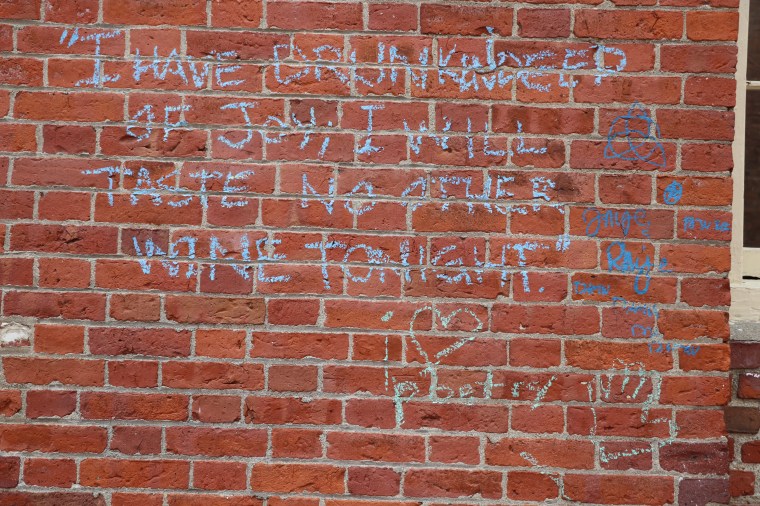 "I HAVE DRUNK DEEP
OF JOY, I WILL
TASTE NO OTHER
WINE TONIGHT."
Ray
i ♡
poetry !!!!